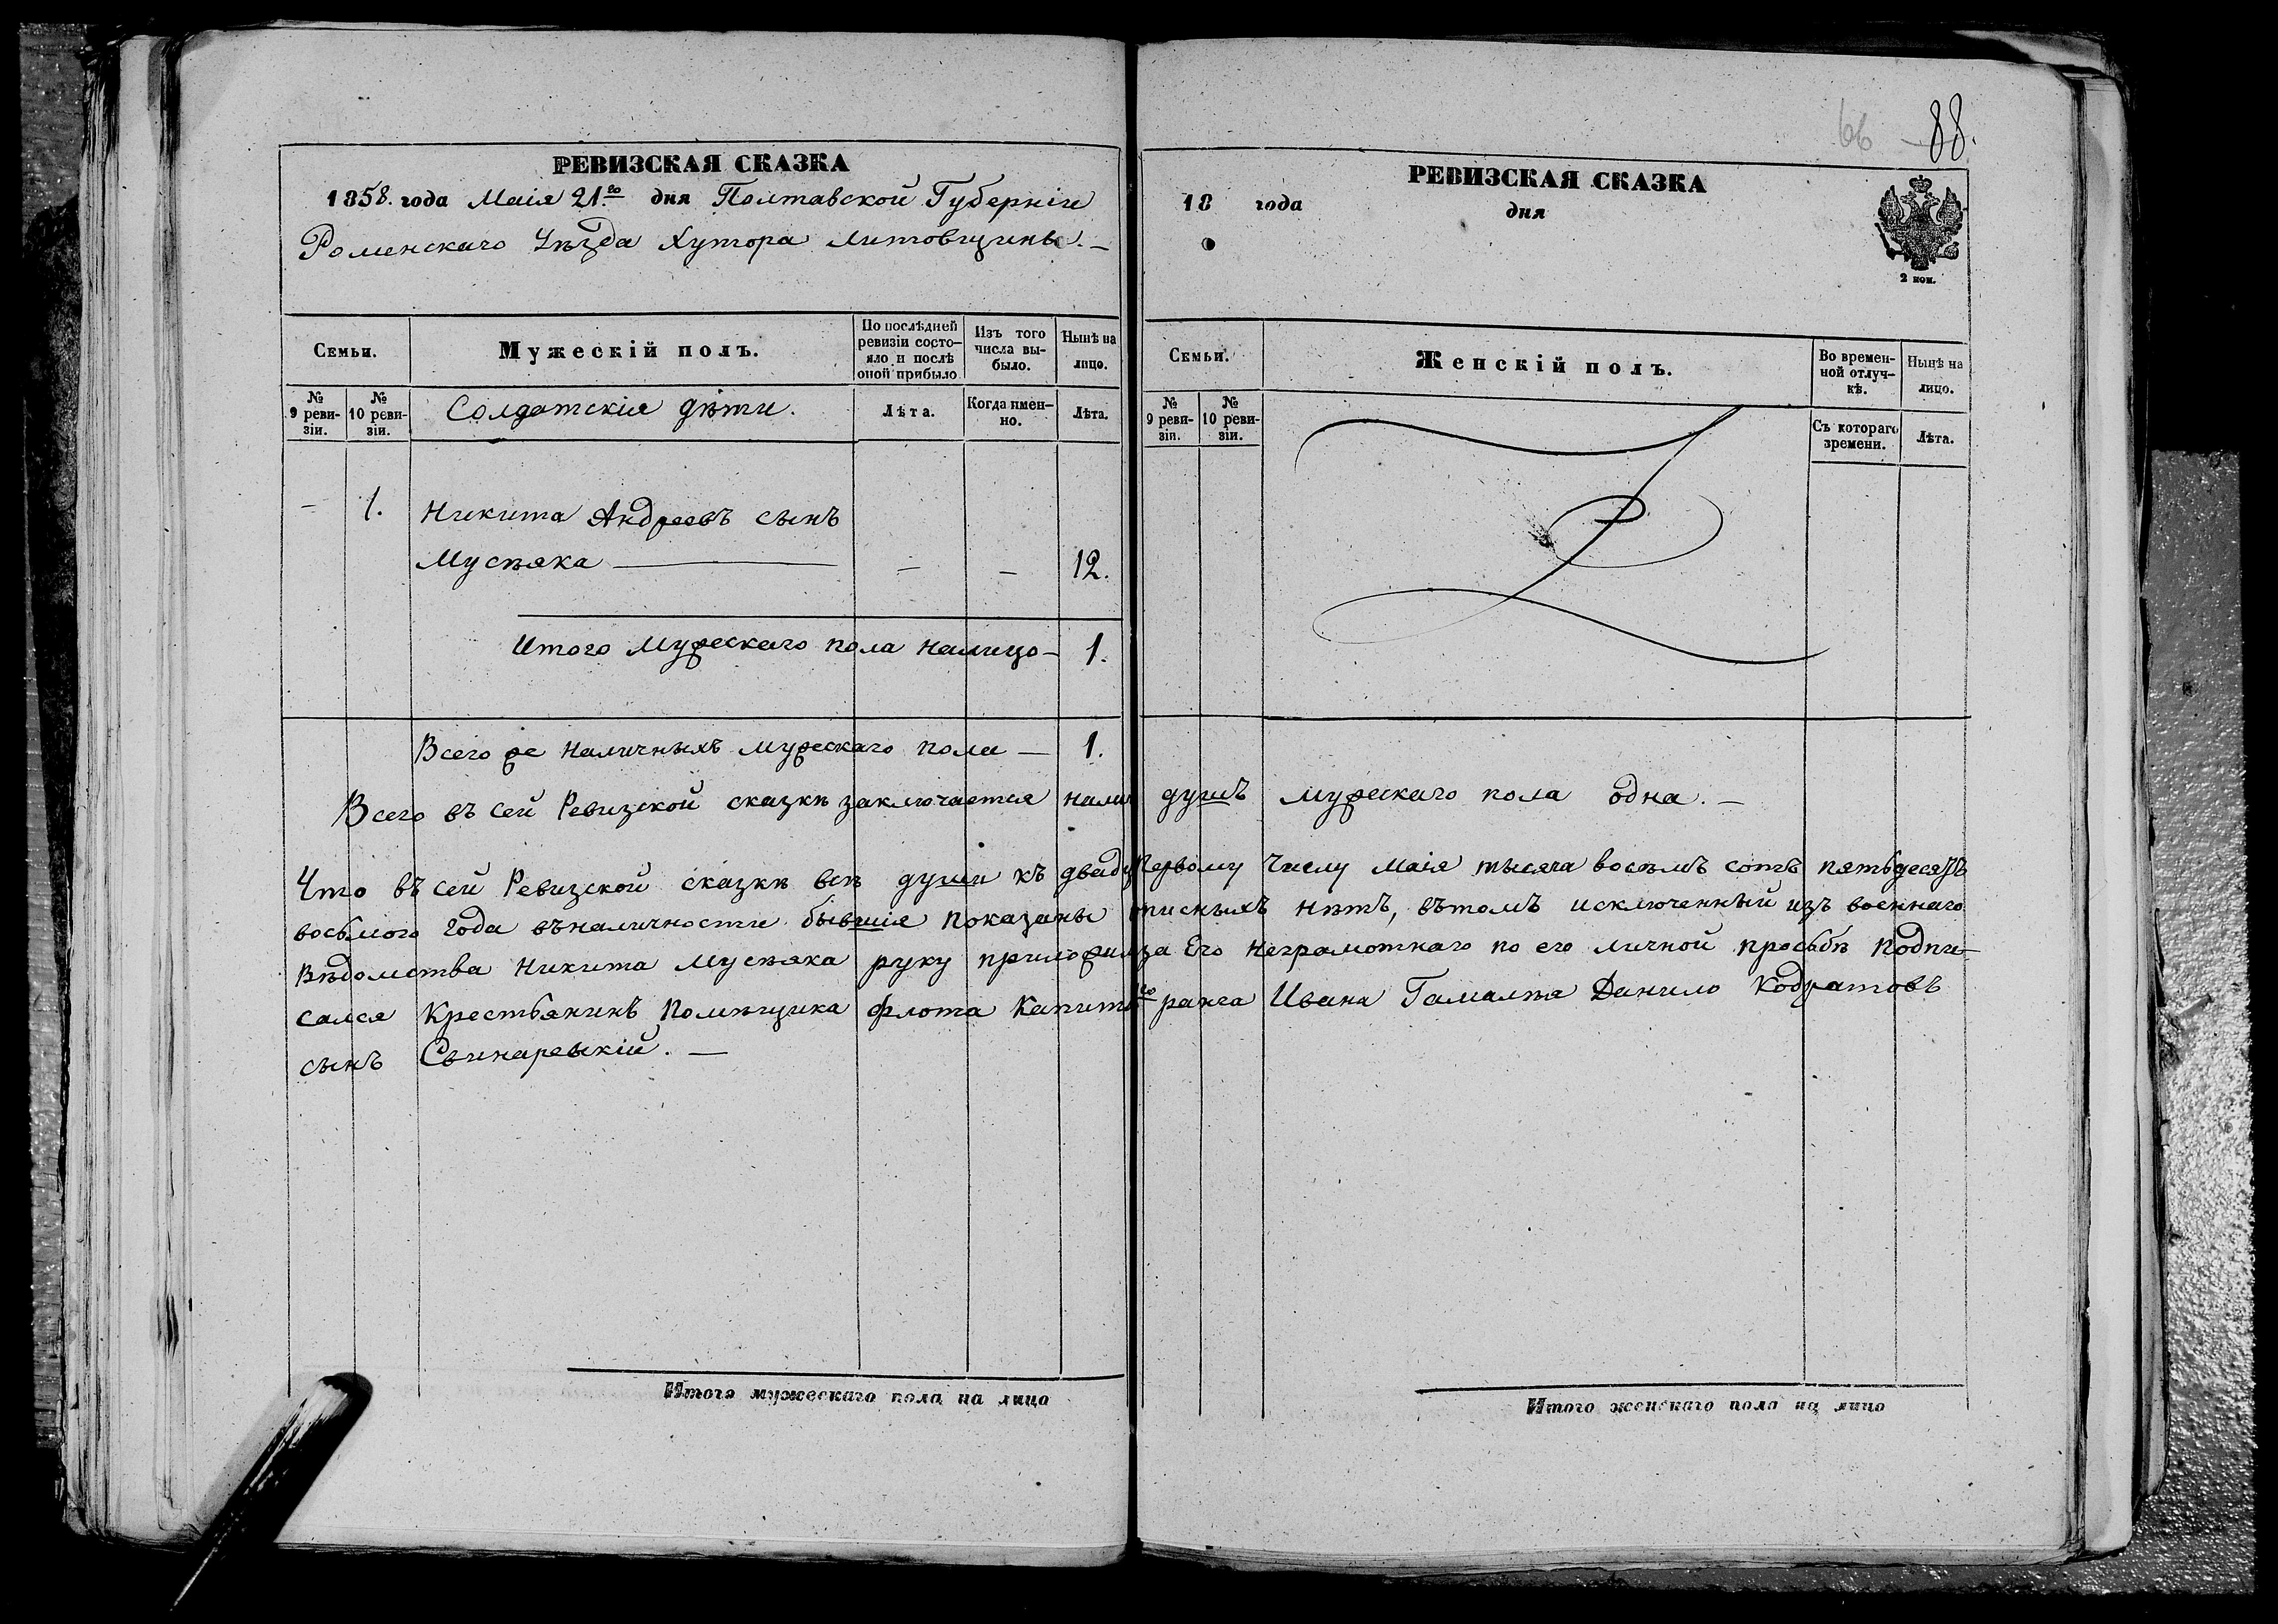 66 88.
РЕВИЗСКАЯ СКАЗКА
1858. года Маія 21го дня Полтавской Губерніи
Роменскаго Уѣзда Хутора Литовщины. —
Семьи.
Мужескій полъ.
По послѣдней ревизіи состо-
яло и послѣ
оной прибыло
Изъ того
числа вы-
было.
Нынѣ на
лицо.
№
9 реви-
зіи.
№
10 реви-
зіи.
Солдатскія дѣти.
Лѣта.
Когда имен-
но.
Лѣта.
— 1. Никита Андреевъ сынъ
Мусѣяка — — — 12.
Итого Мужескаго пола налицо — 1.
Всего же наличныхъ мужескаго пола — 1.
РЕВИЗСКАЯ СКАЗКА
18 года дня
2 коп.
Семьи.
Женскій полъ.
Во времен-
ной отлуч-
кѣ.
Нынѣ на
лицо.
№
9 реви-
зіи.
№
10 реви-
зіи.
Съ котораго
времени.
Лѣта.
Всего въ сей Ревизской сказкѣ заключается налич душъ мужескаго пола одна. —
Что въ сей Ревизской сказкѣ всѣ души къ двадц Первому Числу Маія тысяча восѣмъ сотъ пятьдесятъ
восьмого года въ наличности бывшія показаны описныхъ нѣтъ, вътомъ исключенный изъ военнаго
Вѣдомства Никита Мусѣяка руку приложилъ за Его неграмотнаго по его личной прозьбѣ Подпи-
сался Крестьянинъ Помѣщика Флота Капита го ранга Ивана Гамалѣя Данило Кодратовъ
сынъ Свинаревскій. —
Итого мужескаго пола на лицо
Итого женскаго пола на лицо